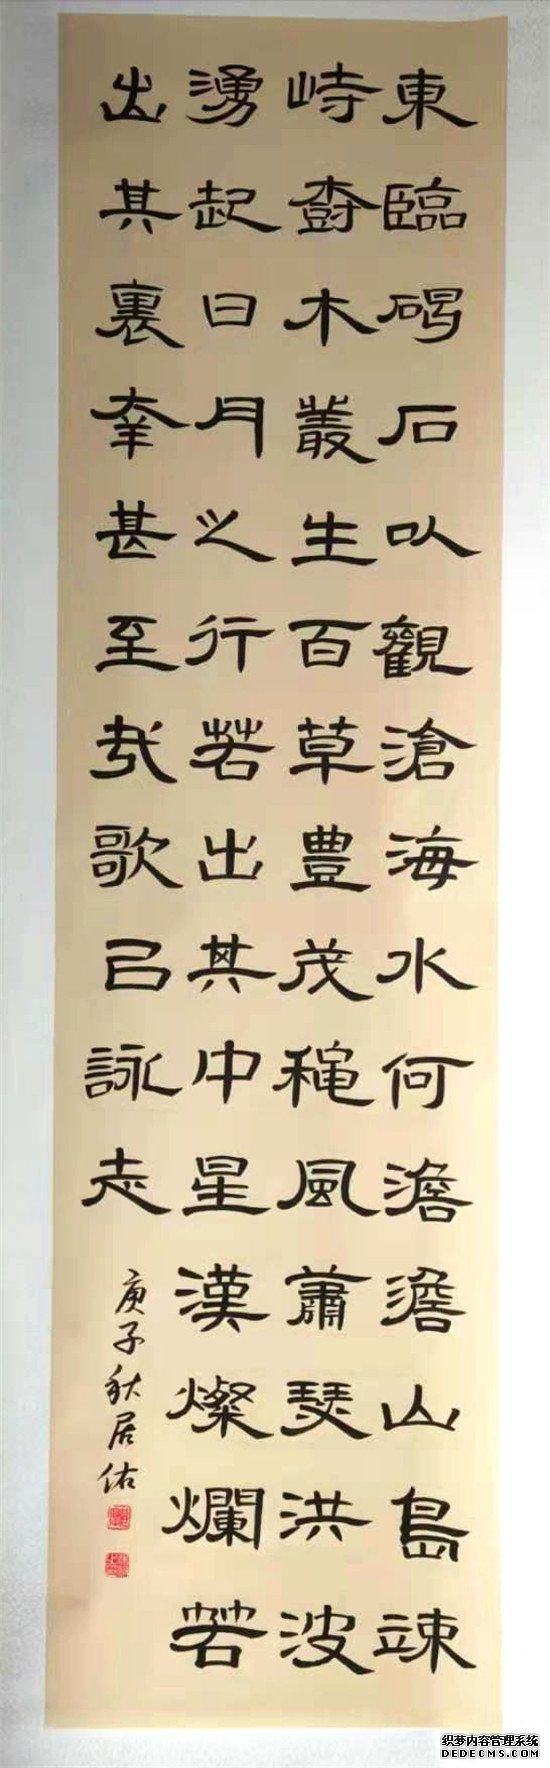 東臨碣石以觀滄海水何澹澹山島竦
峙樹木叢生百草豊茂穐風蕭瑟洪波
湧起日月之行若出其中星漢燦爛若
出其裏幸甚至哉歌㠯詠志
庚子秋居佑
织梦内容管理系统
DEDECMS.COM